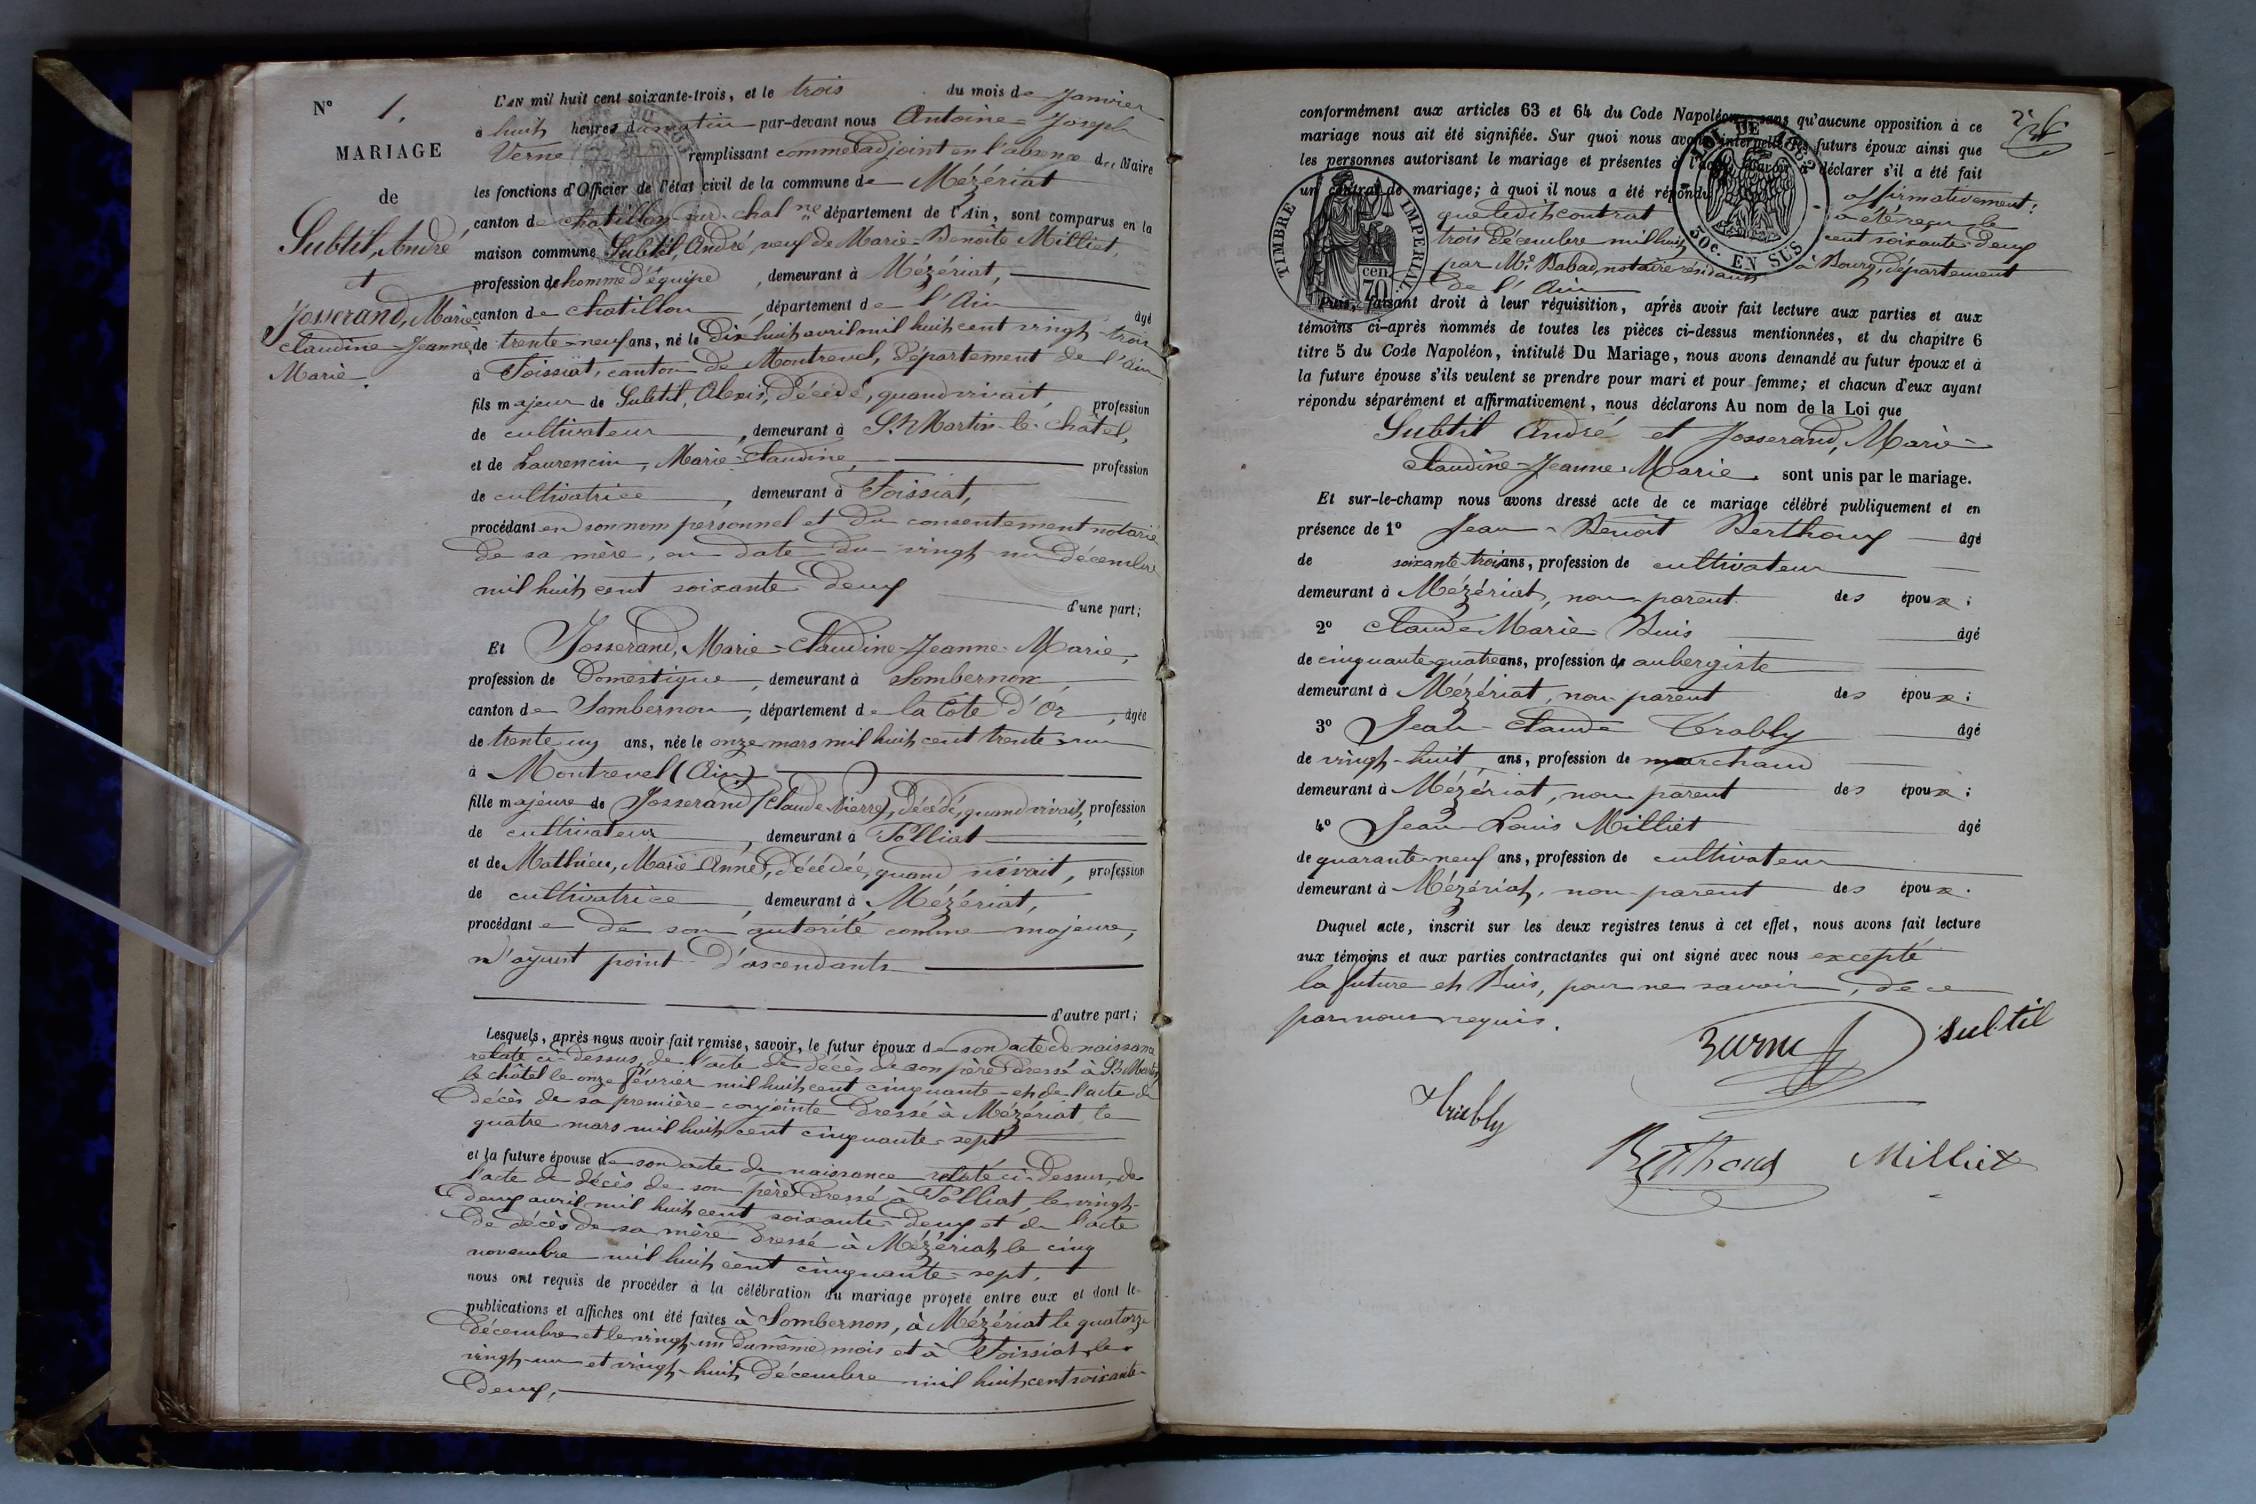 N° 1.
MARIAGE
de
Subtil, André
et
Josserand, Marie
Claudine-Jeanne
Marie.
L'AN mil huit cent soixante-trois, et le trois du mois de Janvier
à huit heures du matin par-devant nous Antoine-Joseph
Verne remplissant comme adjoint en l'absence du Maire
les fonctions d'Officier de l'état civil de la commune de Mézériat
canton de Chatillon-sur-chal.ne département de l'Ain, sont comparus en la
maison commune Subtil, André, veuf de Marie-Benoite Milliet,
profession de homme d'équipe, demeurant à Mézériat,
canton de Chatillon, département de l'Ain âgé
de trente-neuf ans, né le dix huit avril mil huit cent vingt-trois
à Foissiat, canton de Montrevel, département de l'Ain
fils majeur de Subtil, Alexis, décédé, quand vivait, profession
de cultivateur, demeurant à St Martin-le-châtel,
et de Laurencin, Marie-Claudine, profession
de cultivatrice, demeurant à Foissiat,
procédant en son nom personnel et du consentement notarié
de sa mère, en date du vingt-un décembre
mil huit cent soixante deux
d'une part;
Et Josserand, Marie-Claudine-Jeanne-Marie,
profession de Domestique, demeurant à Sombernon,
canton de Sombernon, département de la Côte d'Or, âgée
de trente un ans, née le onze mars mil huit cent trente-un
à Montrevel (Ain)
fille majeure de Josserand (Claude Pierre), décédé, quand vivait, profession
de cultivateur, demeurant à Polliat
et de Mathieu, Marie-Anne, décédée, quand vivait, profession
de cultivatrice, demeurant à Mézériat,
procédante de son autorité comme majeure,
n'ayant point d'ascendants
d'autre part;
Lesquels, après nous avoir fait remise, savoir, le futur époux de son acte de naissance
relaté ci-dessus, de l'acte de décès de son père dressé à St Martin
le châtel le onze février mil huit cent cinquante et de l'acte de
décès de sa première conjointe dressé à Mézériat le
quatre mars mil huit cent cinquante-sept
et la future épouse de son acte de naissance relaté ci-dessus, de
l'acte de décès de son père dressé à Polliat, le vingt-
deux avril mil huit cent soixante-deux et de l'acte
de décès de sa mère dressé à Mézériat le cinq
novembre mil huit cent cinquante-sept.
nous ont requis de procéder à la célébration du mariage projeté entre eux et dont les
publications et affiches ont été faites à Sombernon, à Mézériat le quatorze
décembre et le vingt-un du même mois et à Foissiat, le
vingt-un et vingt-huit décembre mil huit cent soixante-
deux,
conformément aux articles 63 et 64 du Code Napoléon, sans qu'aucune opposition à ce
mariage nous ait été signifiée. Sur quoi nous avons interpellé les futurs époux ainsi que
les personnes autorisant le mariage et présentes à l'acte, d'avoir à déclarer s'il a été fait
un contrat de mariage; à quoi il nous a été répondu affirmativement:
que ledit contrat a été reçu le
trois décembre mil huit cent soixante-deux
par Me Babad, notaire résidant à Bourg, département
de l'Ain
TIMBRE IMPERIAL
cen.
70
LOI DE 1862
50c. EN SUS
Puis, faisant droit à leur réquisition, après avoir fait lecture aux parties et aux
témoins ci-après nommés de toutes les pièces ci-dessus mentionnées, et du chapitre 6
titre 5 du Code Napoléon, intitulé Du Mariage, nous avons demandé au futur époux et à
la future épouse s'ils veulent se prendre pour mari et pour femme; et chacun d'eux ayant
répondu séparément et affirmativement, nous déclarons Au nom de la Loi que
Subtil André et Josserand, Marie-
Claudine-Jeanne-Marie sont unis par le mariage.
Et sur-le-champ nous avons dressé acte de ce mariage célébré publiquement et en
présence de 1° Jean-Benoit Berthoux âgé
de soixante trois ans, profession de cultivateur
demeurant à Mézériat, non parent des époux;
2° Claude Marie Buis âgé
de cinquante quatre ans, profession de aubergiste
demeurant à Mézériat, non parent des époux;
3° Jean-Claude Trably âgé
de vingt-huit ans, profession de marchand
demeurant à Mézériat, non parent des époux;
4° Jean-Louis Milliet âgé
de quarante-neuf ans, profession de cultivateur
demeurant à Mézériat, non parent des époux.
Duquel acte, inscrit sur les deux registres tenus à cet effet, nous avons fait lecture
aux témoins et aux parties contractantes qui ont signé avec nous excepté
la future et Buis, pour ne savoir, de ce
par nous requis.
Verne
subtil
Trably
Berthoud
Milliet